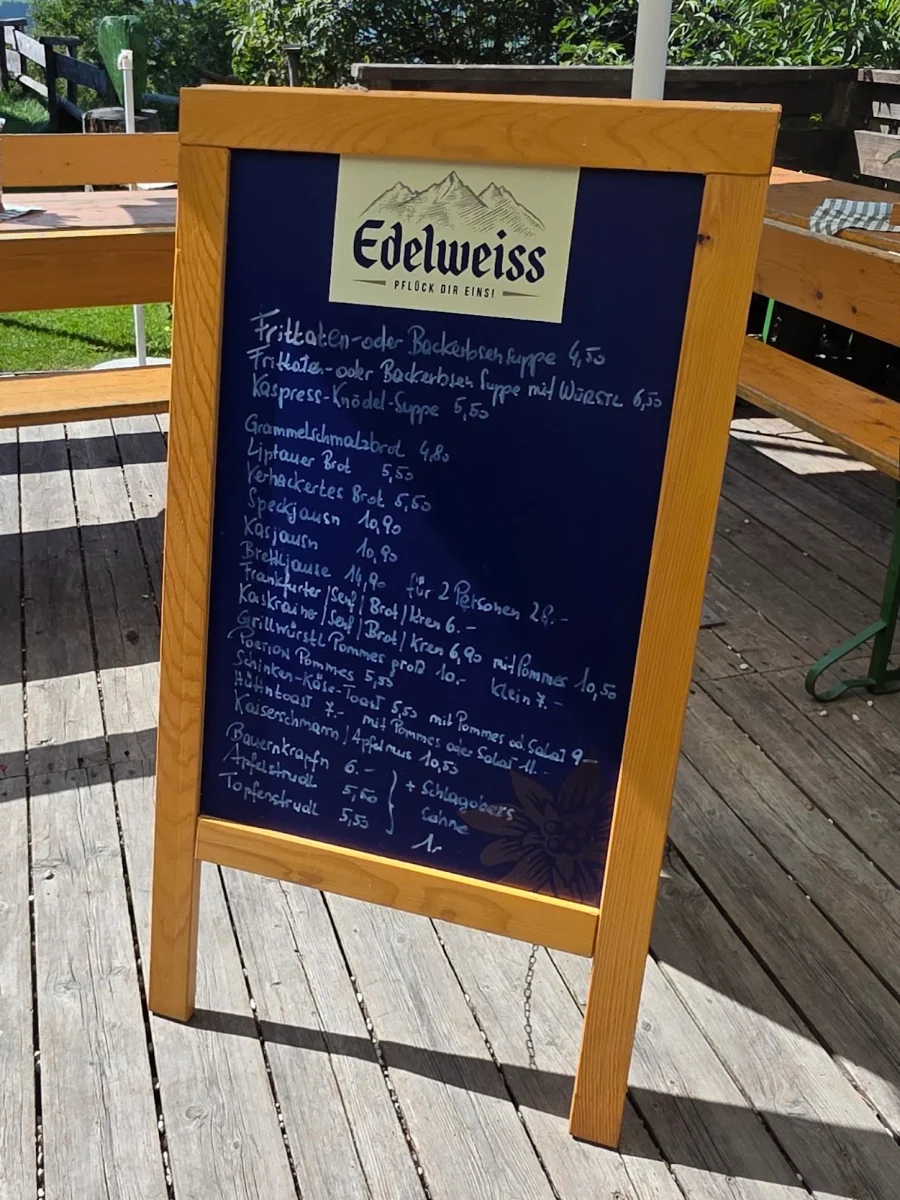 Edelweiss
PFLÜCK DIR EINS!
Frittaten-oder Backerbsensuppe 4,50
Frittaten-oder Backerbsen Suppe mit WÜRSTL 6,50
Kaspress-Knödel-Suppe 5,50
Grammelschmalzbrot 4,80
Liptauer Brot 5,50
Verhackertes Brot 5,50
Speckjausn 10,90
Kasjausn 10,90
Brettljause 14,90 für 2 Personen 28.-
Frankfurter/Senf/Brot/Kren 6.-
Kaskrainer/Senf/Brot/Kren 6,90 mit Pommes 10,50
Grillwürstl Pommes groß 10.- klein 7.-
Portion Pommes 5,50
Schinken-Käse-Toast 5,50 mit Pommes od. Salat 9.-
Hüttntoast 7.- mit Pommes oder Salat 11.-
Kaiserschmarrn/Apfelmus 10,50
Bauernkrapfn 6.-
Apfelstrudl 5,50 + Schlagobers
Topfenstrudl 5,50 Sahne
1.-